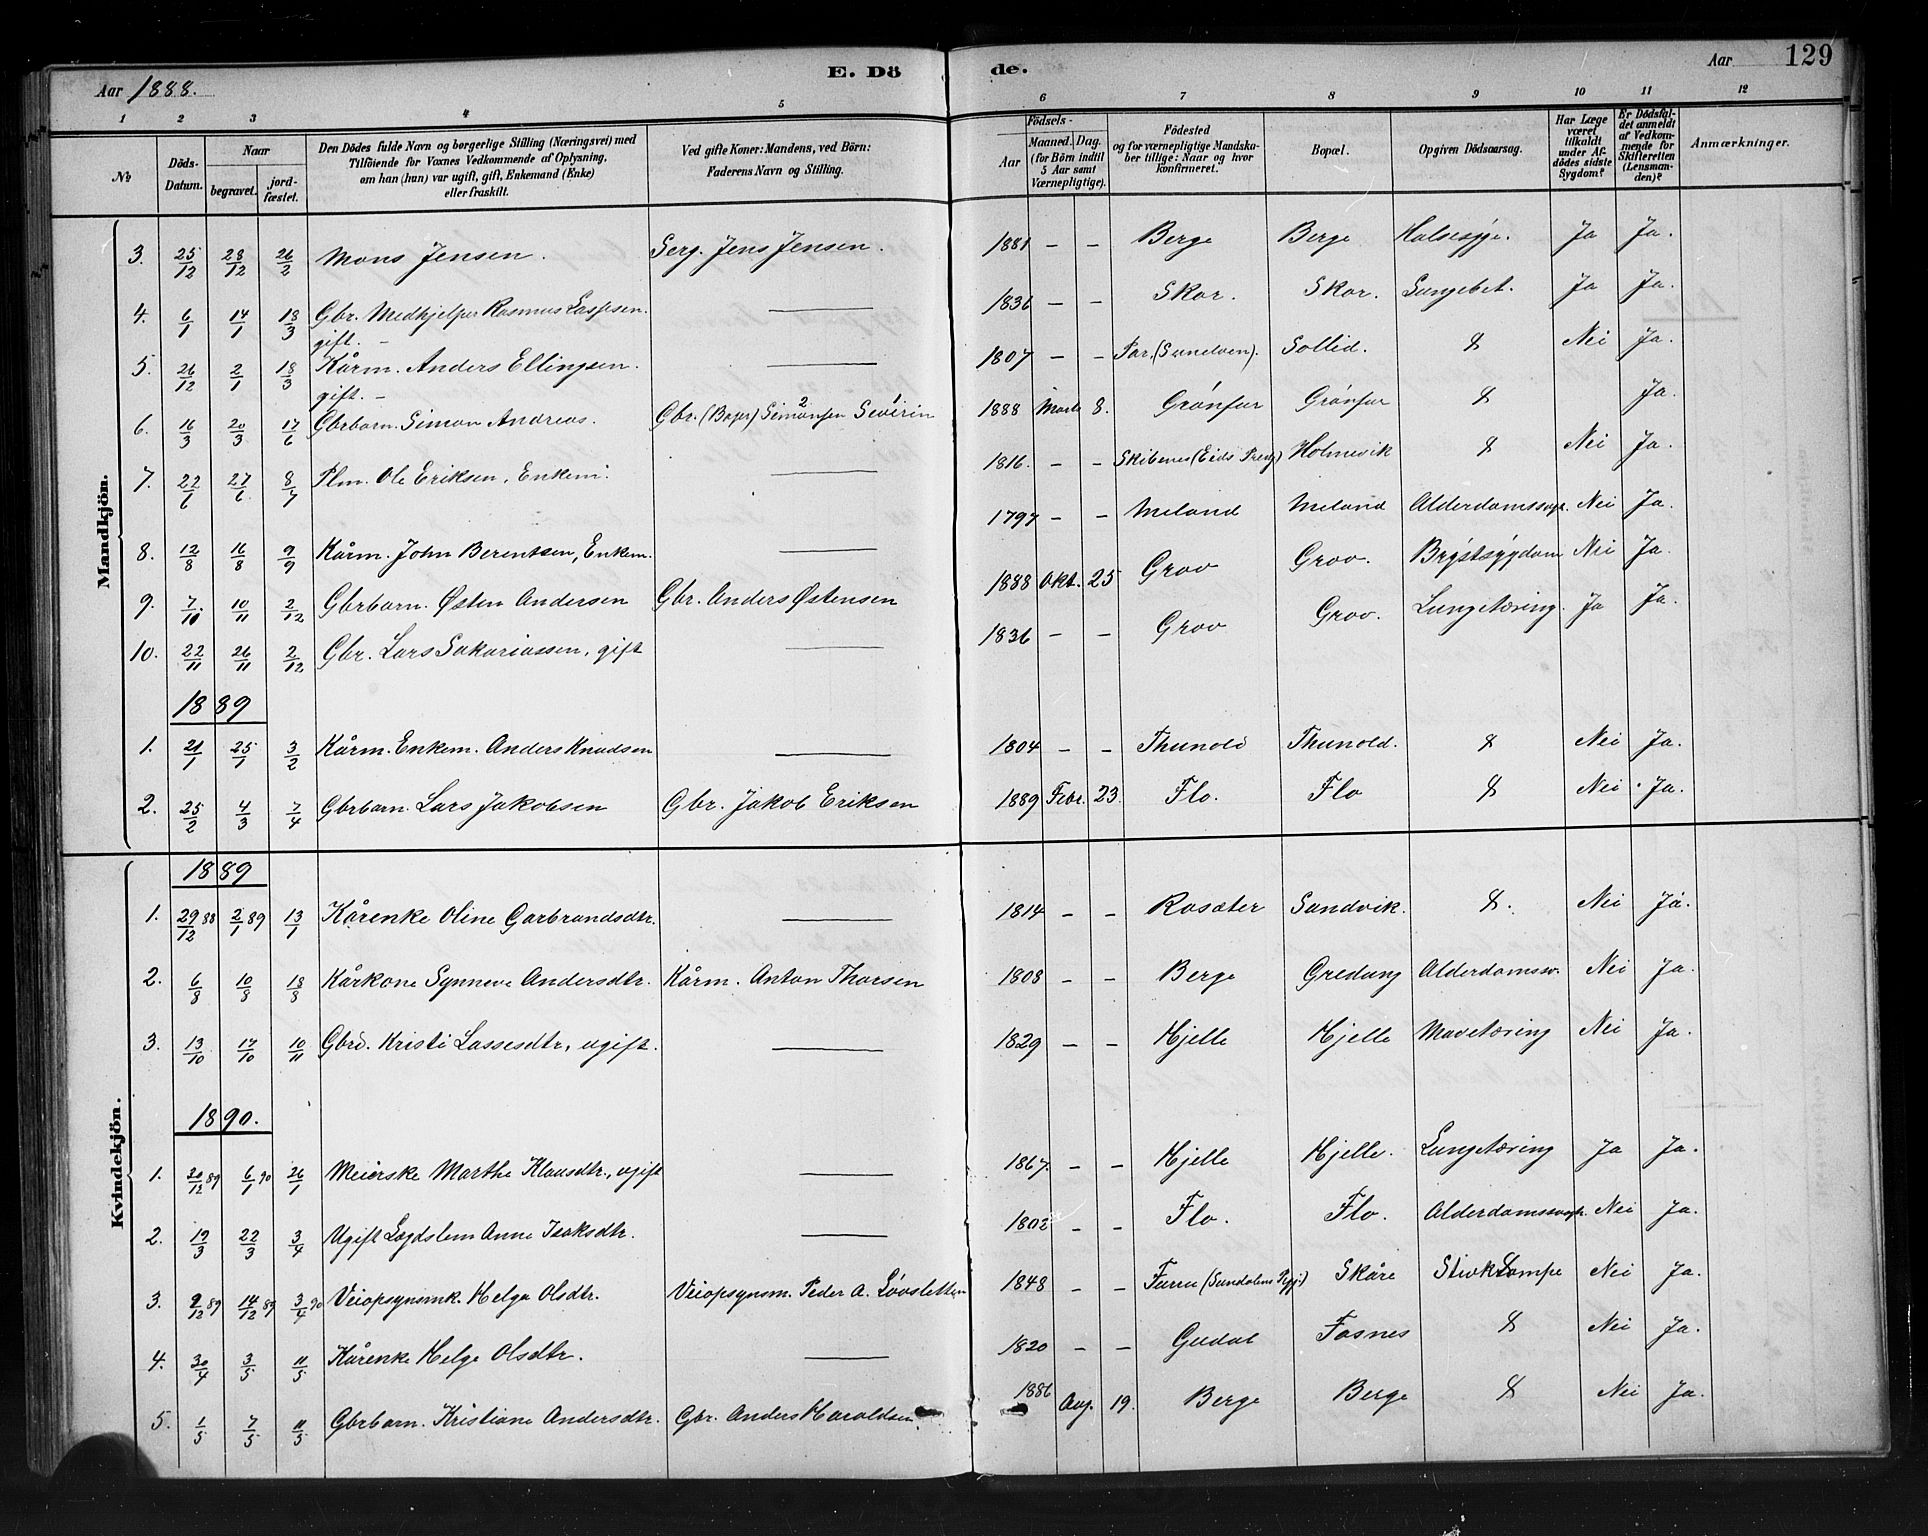 E. Dö de.
Aar 1888. Aar 129
1 2 3 4 5 6 7 8 9 10 11 12
No Döds-Datum. Naar begravet. jordfæstet. Den Dödes fulde Navn og borgerlige Stilling (Næringsvei) med Tilföiende for Voxnes Vedkommende af Oplysning, om han (hun) var ugift, gift, Enkemand (Enke) eller fraskilt. Ved gifte Koner: Mandens, ved Börn: Faderens Navn og Stilling. Födsels- Aar Maaned. Dag. (for Börn indtil 5 Aar samt Værnepligtige). Födested og for værnepligtige Mandskaber tillige: Naar og hvor konfirmeret. Bopæl. Opgiven Dödsaarsag. Har Læge været tilkaldt under Afdödes sidste Sygdom? Er Dödsfaldet anmeldt af Vedkommende for Skifteretten (Lensmanden)? Anmærkninger.
Mandkjön.
3. 25/12 28/12 26/2 Mons Jensen. Serg. Jens Jensen. 1881 – – Berge Berge Halsesyge. Ja Ja.
4. 6/1 14/1 18/3 Gbr. Medhjelper Rasmus Lassesen. gift. – 1836 – – Skor. Skor. Lungebet. Ja Ja.
5. 26/12 2/1 18/3 Kårm. Anders Ellingsen. gift. – 1807 – – (Sunelven). Sollid. & Nei Ja.
6. 16/3 20/3 17/6 Gbrbarn. Simon Andreas. Gbr. (Bager) Simonsen Severin 1888 Marts 8. Grönfur Grönfur & Ja.
7. 22/6 27/6 8/7 Plm. Ole Eriksen, Enkem. 1816. – – Skibenes (Eids Præg) Holmevik & Nei Ja.
8. 12/8 16/8 9/9 Kårm. John Berentsen, Enkem. 1797 – – Meland Meland Alderdomssvgh. Nei Ja.
9. 7/10 10/11 2/12 Gbrbarn. Østen Andersen Gbr. Anders Østensen 1888 Okt. 25 Grov Grov. Brystsygdom Nei Ja.
10. 22/11 26/11 2/12 Gbr. Lars Sakariassen, gift 1836 – – Grov Grov. Lungetæring. Ja Ja.
1889
1. 21/1 25/1 3/2 Kårm. Enkem. Anders Knudsen 1804 – – Thunold Thunold. & Nei Ja.
2. 25/2 4/3 7/4 Gbrbarn. Lars Jakobsen Gbr. Jakob Eriksen 1889 Febr. 23. Flo. Flo & Nei Ja.
Kvindekjön.
1889
1. 29/12 88 2/1 89 13/1 Kårenke Oline Garbrandsdtr. 1814 – – Rosæter Sandvik. &. Nei Ja.
2. 6/8 10/8 18/8 Kårkone Synneve Andersdtr. Kårm. Anton Thorsen 1808 – – Berge Gredung Alderdomssv. Nei Ja.
3. 13/10 17/10 10/11 Gbrd. Kristi Lassesdtr, ugift. 1829 – – Hjelle Hjelle Mavetæring Nei Ja.
1890.
1. 30/12 89 6/1 90 26/1 Meierske Marthe Klausdtr., ugift 1867. – – Hjelle Hjelle. Lungetæring Ja Ja.
2. 19/3 22/3 3/4 Ugift Lægdslem Anne Isaksdtr. 1802 – – Flo. Flo. Alderdomssvgh. Nei Ja.
3. 9/12 89 14/12 89 3/4 90 Veiopsynsmk. Helga Olsdtr. Veiopsynsm. Peder A. Lövsletten 1848 – – (Sundalens Pgj.) Skåre Nei Ja.
4. 30/4 3/5 11/5 Kårenke Helge Olsdtr. 1820 – – Gudal Fosnes & Nei Ja.
5. 1/5 7/5 11/5 Gbrbarn. Kristiane Andersdtr. Gbr. Anders Haraldsen 1886 Aug. 19. Berge Berge & Nei Ja.